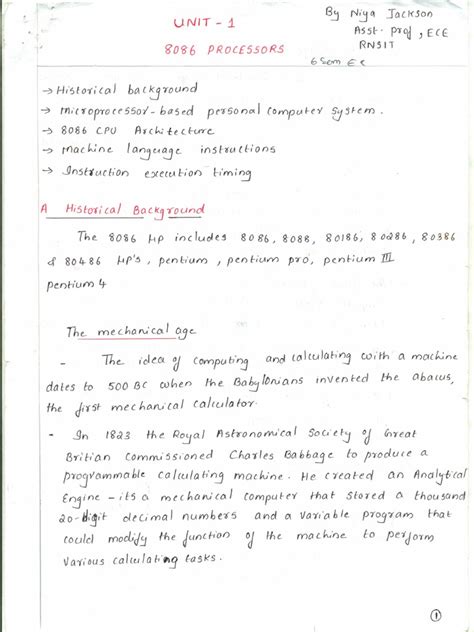 UNIT - 1
8086 PROCESSORS
By Niya Jackson
Asst. Prof, ECE
RNSIT
6 Sem EC
→ Historical background
→ Microprocessor-based personal computer system.
→ 8086 CPU Architecture
→ Machine language instructions
→ Instruction execution timing
A Historical Background
The 8086 μp includes 8086, 8088, 80186, 80286, 80386
& 80486 μp's, pentium, pentium pro, pentium III
pentium 4
The mechanical age
- The idea of computing and calculating with a machine
dates to 500 BC when the Babylonians invented the abacus,
the first mechanical calculator.
- In 1823 the Royal Astronomical Society of Great
Britian commissioned Charles Babbage to produce a
programmable calculating machine. He created an Analytical
Engine - its a mechanical computer that stored a thousand
20-digit decimal numbers and a variable program that
could modify the function of the machine to perform
various calculating tasks.
1